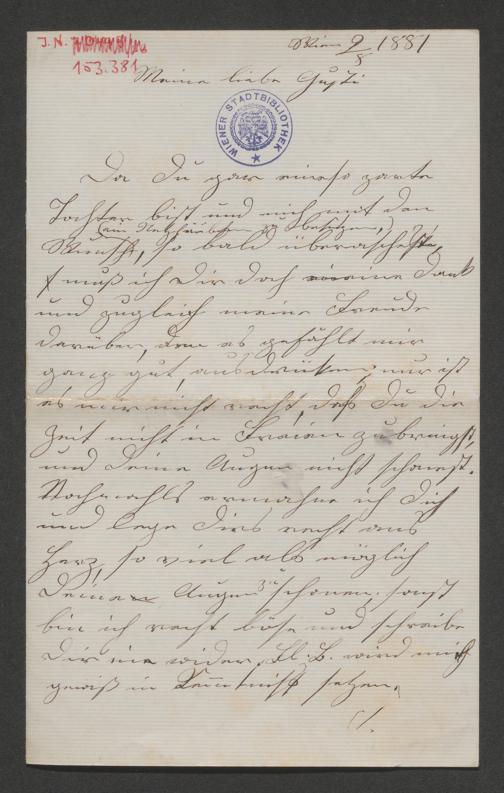 J. N.
153.381
Wien 9/8 1881
Meine liebe Gusti
WIENER STADTBIBLIOTHEK
Da Du gar eine so zarte
Tochter bist und mich mit den
(ein Netzhäubchen zu besitzen,)
Wunsche, so bald überaschest,
muß ich Dir doch meine Dank
und zugleich meine Freude
darüber, den es gefählt mir
ganz gut, ausdrüken, nur ist
es mir nicht recht, daß Du die
Zeit nicht in Freien zubringst,
und Deine Augen nicht schonest.
Nochmahls ermahne ich Dich
und lege Dirs recht ans
Herz, so viel als möglich
Deine Augen zu schonen, sonst
bin ich recht böse und schreibe
Dir nie wider. Fl. B. wird mich
gewiß in Kenntniß setzen.